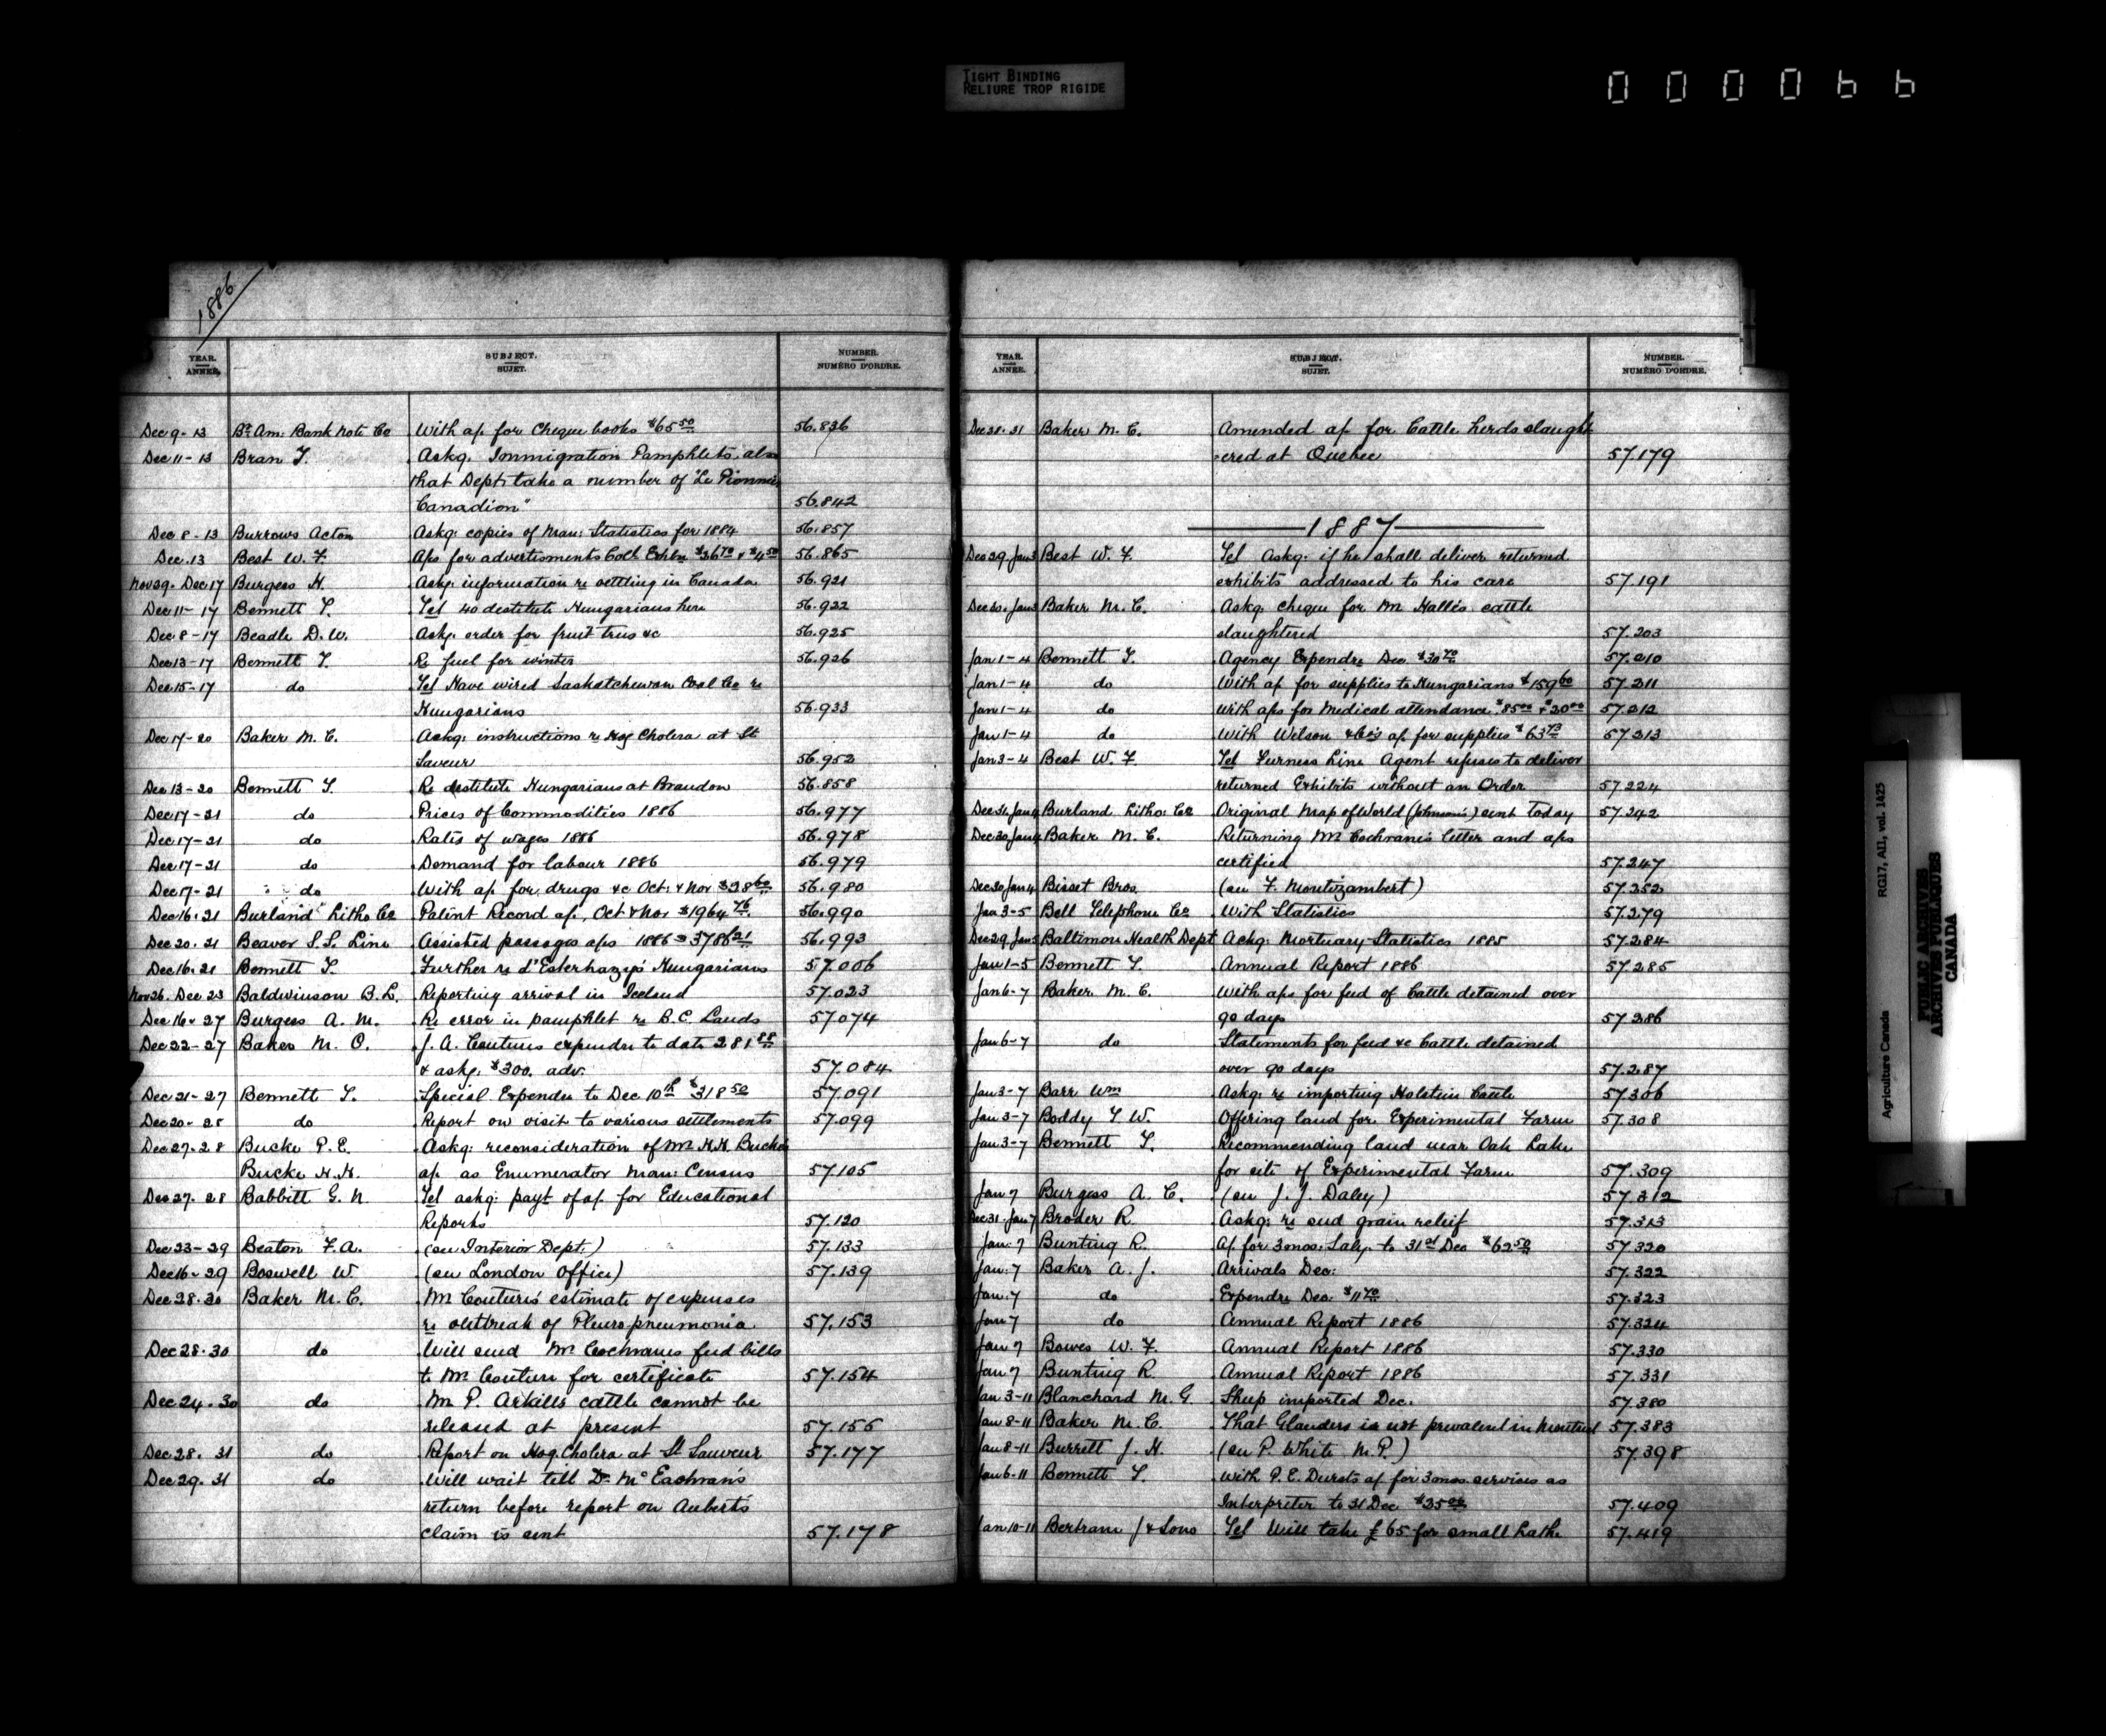 TIGHT BINDING
RELIURE TROP RIGIDE
000066
1886
YEAR. ANNÉE. SUBJECT. SUJET. NUMBER. NUMÉRO D'ORDRE.
Dec 9-13 Br Am: Bank Note Co With a/c for Cheque books $65 50 56.836
Dec 11-13 Bran T. Askg. Immigration Pamphlets, also
that Dept. take a number of "Le Pionnier
Canadien" 56.842
Dec 8-13 Burrows Acton Askg. copies of Man: Statistics for 1884 56.857
Dec.13 Best W. F. A/cs for advertisments Col: Exhbn $26 70 & $4 50 56.865
Nov 29. Dec 17 Burgess H. Askg. information re settling in Canada 56.921
Dec 11-17 Bennett T. Tel 40 destitute Hungarians here 56.922
Dec 8-17 Beadle D. W. Askg. order for fruit trees &c 56.925
Dec 13-17 Bennett T. Re fuel for winter 56.926
Dec 15-17 do Tel Have wired Saskatchewan Coal Co re
Hungarians 56.933
Dec 17-20 Baker M. C. Askg. instructions re Hog Cholera at St
Saveur 56.952
Dec 13-20 Bennett T. Re destitute Hungarians at Brandon 56.858
Dec 17-21 do Prices of Commodities 1886 56.977
Dec 17-21 do Rates of wages 1886 56.978
Dec 17-21 do Demand for labour 1886 56.979
Dec 17-21 do With a/c for drugs &c Oct: & Nov $28 60 56.980
Dec 16.21 Burland Litho Co Patent Record a/c, Oct & Nov $1964 76 56.990
Dec 20.21 Beaver S.S. Line Assisted passages a/cs 1886 $3786 21 56.993
Dec 16.21 Bennett T. Further re d'Esterhazy's Hungarians 57.006
Nov 26. Dec 23 Baldwinson B. L. Reporting arrival in Iceland 57.023
Dec 16-27 Burgess A. M. Re error in pamphlet re B.C. Lands 57.074
Dec 22-27 Baker M. C. J. A. Coutures expendre to date 281 88
& askg. $300. adv. 57.084
Dec 21-27 Bennett T. Special Expendre to Dec 10th $318 50 57.091
Dec 20-28 do Report on visit to various settlements 57.099
Dec 27.28 Bucke P. E. Askg: reconsideration of Mr H.H. Buckes
Bucke H. H. ap. as Enumerator Man: Census 57.105
Dec 27.28 Babbitt G. N. Tel askg: payt of a/c for Educational
Reports 57.120
Dec 23-29 Beaton F. A. (see Interior Dept.) 57.133
Dec 16-29 Boswell W. (see London Office) 57.139
Dec 28.30 Baker M. C. Mr Couture's estimate of expenses
re outbreak of Pleuro pneumonia 57.153
Dec 28.30 do Will send Mr Cochranes feed bills
to Mr Couture for certificate 57.154
Dec 24.30 do Mr P. Arkills cattle cannot be
released at present 57.156
Dec 28.31 do Report on Hog Cholera at St Sauveur 57.177
Dec 29.31 do Will wait till Dr. McEachran's
return before report on Aubert's
claim is sent 57.178
YEAR. ANNÉE. SUBJECT. SUJET. NUMBER. NUMÉRO D'ORDRE.
Dec 28.31 Baker M. C. Amended a/c for Cattle herds slaught
ered at Quebec 57.179
1887
Dec 29. Jan 3 Best W. F. Tel Askg: if he shall deliver returned
exhibits addressed to his care 57.191
Dec 30. Jan 3 Baker M. C. Askg. cheque for Mr Halle's cattle
slaughtered 57.203
Jan 1-4 Bennett T. Agency Expendre Dec $30 70 57.210
Jan 1-4 do With a/c for supplies to Hungarians $159 60 57.211
Jan 1-4 do With a/cs for Medical attendance $85 00 & $20 00 57.212
Jan 1-4 do With Wilson & Co's a/c for supplies $63 73 57.213
Jan 3-4 Best W. F. Tel Furness Line Agent refuses to deliver
returned Exhibits without an Order 57.224
Dec 31. Jan 4 Burland Litho: Co Original Map of World (Johnson's) sent today 57.242
Dec 30. Jan 4 Baker M. C. Returning Mr Cochrane's letter and a/cs
certified 57.247
Dec 30 Jan 4 Bisset Bros. (see F. Montizambert) 57.252
Jan 3-5 Bell Telephone Co With Statistics 57.279
Dec 29 Jan 5 Baltimore Health Dept Ackg. Mortuary Statistics 1885 57.284
Jan 1-5 Bennett T. Annual Report 1886 57.285
Jan 6-7 Baker M. C. With a/cs for feed of Cattle detained over
90 days 57.286
Jan 6-7 do Statements for feed &c Cattle detained
over 90 days 57.287
Jan 3-7 Barr Wm Askg: re importing Holstein Cattle 57.306
Jan 3-7 Boddy T. W. Offering land for Experimental Farm 57.308
Jan 3-7 Bennett T. Recommending land near Oak Lake
for site of Experimental Farm 57.309
Jan 7 Burgess A. C. (see J. J. Daley) 57.312
Dec 31. Jan 7 Broder R. Askg: re seed grain relief 57.313
Jan. 7 Bunting R. A/c for 3 mos: Saly. to 31st Dec $62 50 57.320
Jan. 7 Baker A. J. Arrivals Dec: 57.322
Jan. 7 do Expendre Dec: $11 70 57.323
Jan. 7 do Annual Report 1886 57.324
Jan 7 Bowes W. F. Annual Report 1886 57.330
Jan 7 Bunting R Annual Report 1886 57.331
Jan 3-11 Blanchard M. G. Sheep imported Dec. 57.380
Jan 8-11 Baker M. C. That Glanders is not prevalent in Montreal 57.383
Jan 8-11 Burrett J. H. (see P. White M. P.) 57.398
Jan 6-11 Bennett T. With P. E. Dursts a/c for 3 mos. services as
Interpreter to 31 Dec $25 00 57.409
Jan 10-11 Bertram J & Sons Tel Will take £65 for small Lathe 57.419
Agriculture Canada RG17, AII, vol. 1425
PUBLIC ARCHIVES
ARCHIVES PUBLIQUES
CANADA